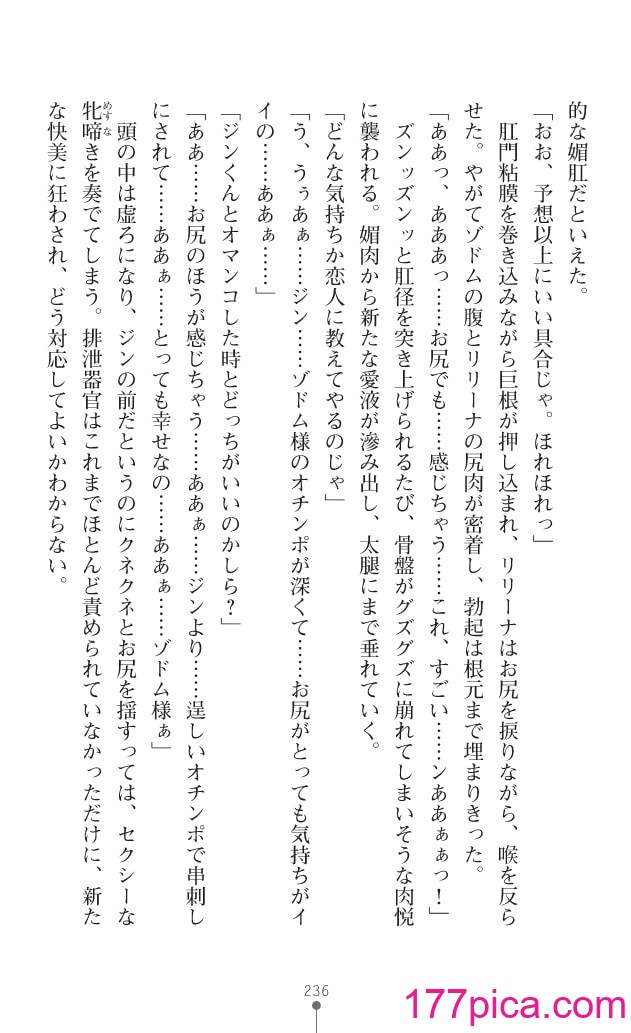 的な媚肛だといえた。
「おお、予想以上にいい具合じゃ。ほれほれっ」
肛門粘膜を巻き込みながら巨根が押し込まれ、リリーナはお尻を捩りながら、喉を反ら
せた。やがてゾドムの腹とリリーナの尻肉が密着し、勃起は根元まで埋まりきった。
「ああっ、あああっ……お尻でも……感じちゃう……これ、すごい……ンああぁぁっ！」
ズンッズンッと肛径を突き上げられるたび、骨盤がグズグズに崩れてしまいそうな肉悦
に襲われる。媚肉から新たな愛液が滲み出し、太腿にまで垂れていく。
「どんな気持ちか恋人に教えてやるのじゃ」
「う、うぅあぁ……ジン……ゾドム様のオチンポが深くて……お尻がとっても気持ちがイ
イの……ああぁ……」
「ジンくんとオマンコした時とどっちがいいのかしら？」
「ああ……お尻のほうが感じちゃう……ああぁ……ジンより……逞しいオチンポで串刺し
にされて……ああぁ……とっても幸せなの……ああぁ……ゾドム様ぁ」
頭の中は虚ろになり、ジンの前だというのにクネクネとお尻を揺すっては、セクシーな
牝啼きを奏でてしまう。排泄器官はこれまでほとんど責められていなかっただけに、新た
めすな
な快美に狂わされ、どう対応してよいかわからない。
236
177pica.com